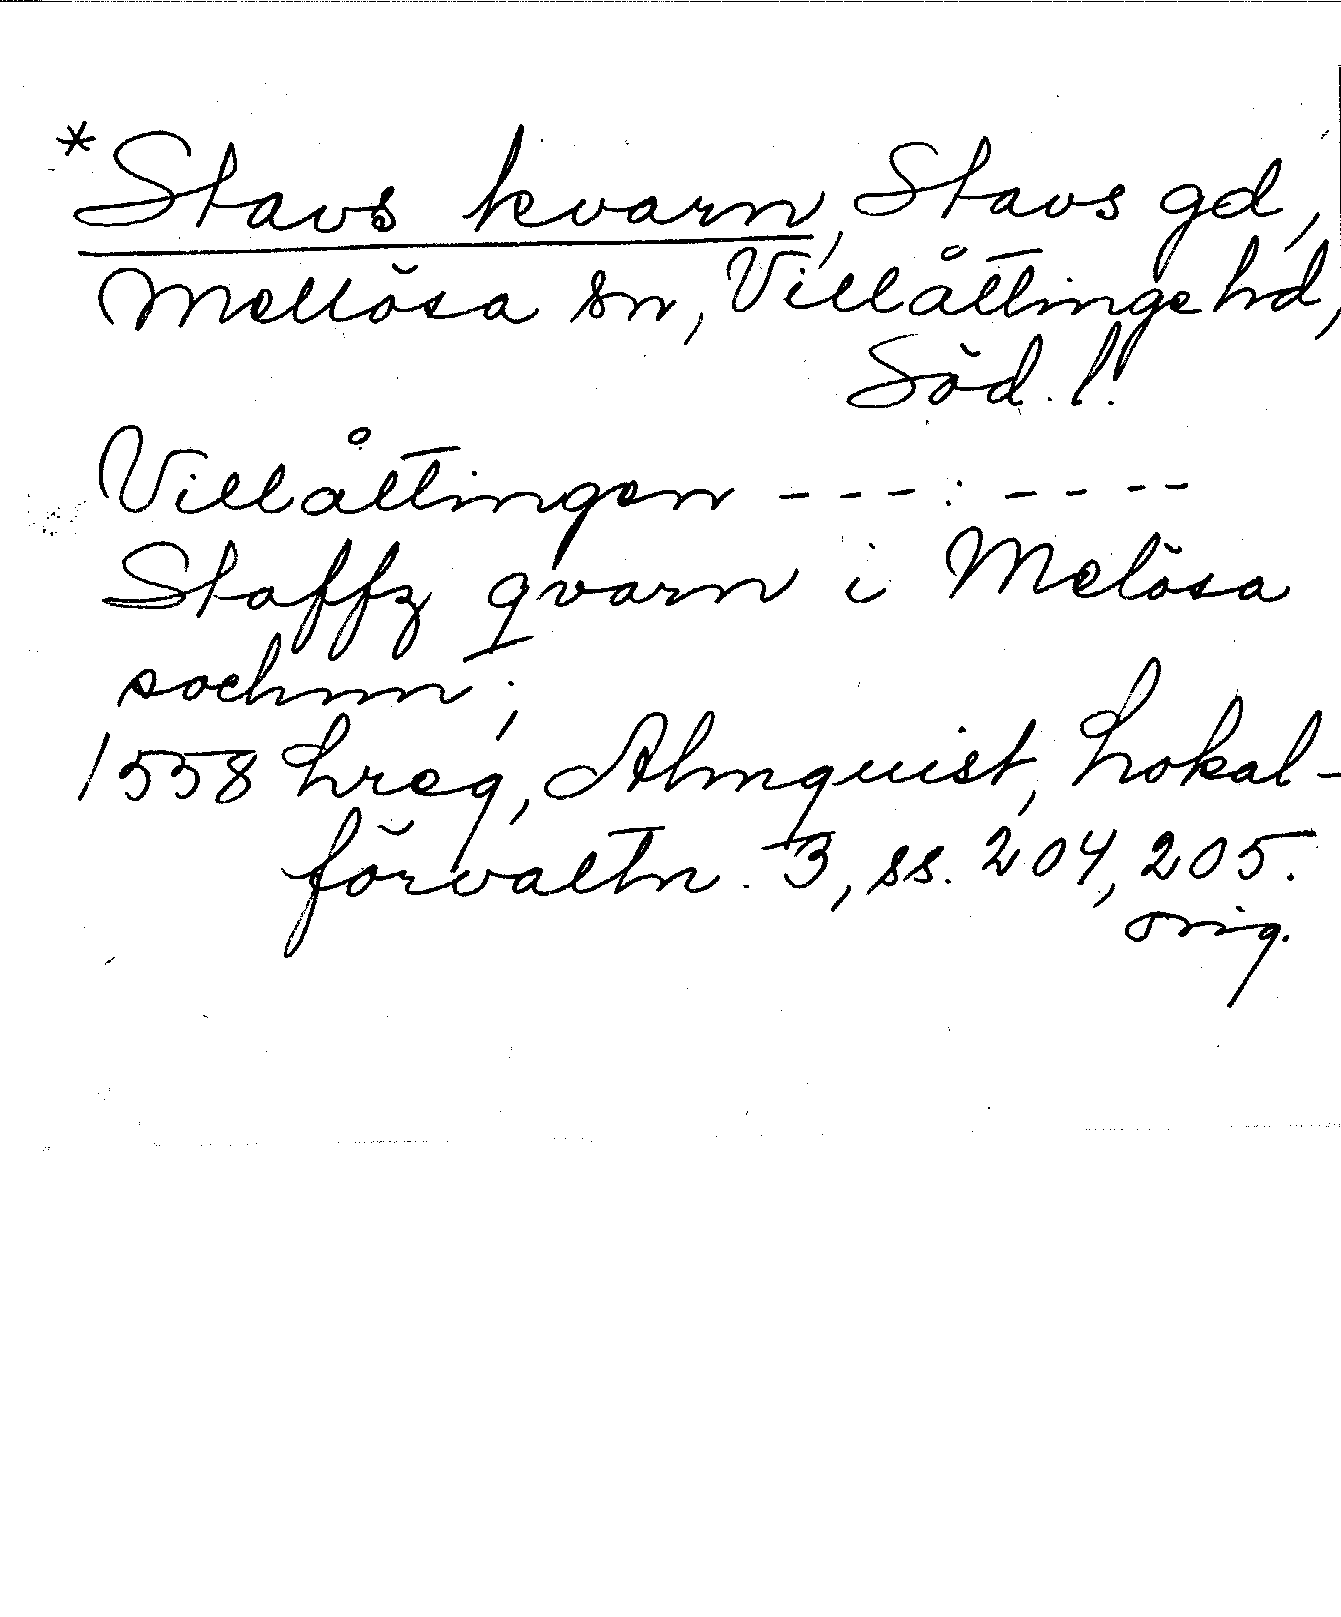 *Stavs kvarn, Stavs gd,
Mellösa sn, Villåttinge hd,
Söd. l.
Villåttingen - - - : - - - -
Staffz qvarn i Melösa
sochnn;
1558 hreg, Almquist, Lokal-
förvaltn. 3, ss. 204, 205.
orig.